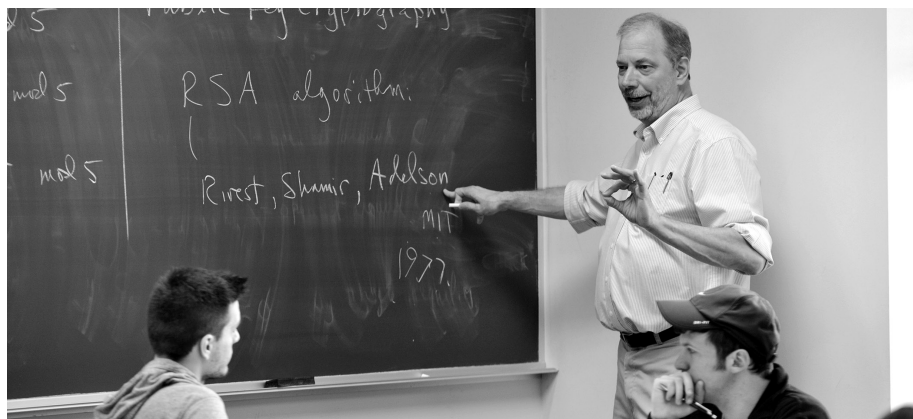 d 5
mod 5
mod 5
Public Key Cryptography
RSA algorithm:
Rivest, Shamir, Adelson
MIT
1977